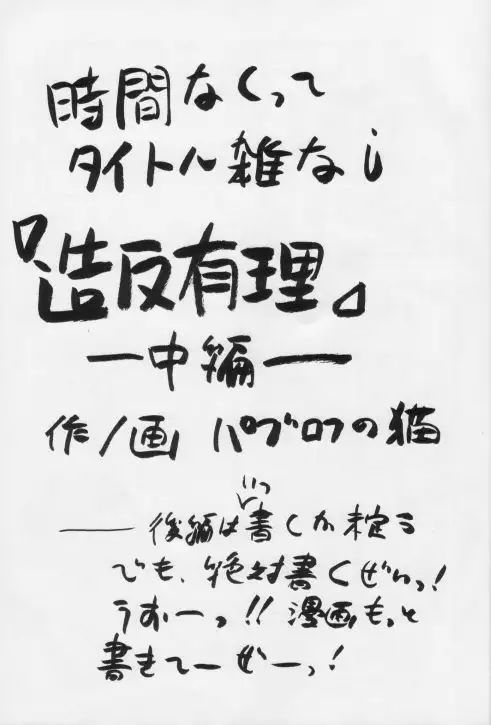 時間なくって
タイトル雑な
『造反有理』
―中編―
作/画 パブロフの猫
――後編はいつ書くか未定う
でも、絶対書くぜいっ!
うおーっ!! 漫画もっと
書きてーぜーっ!